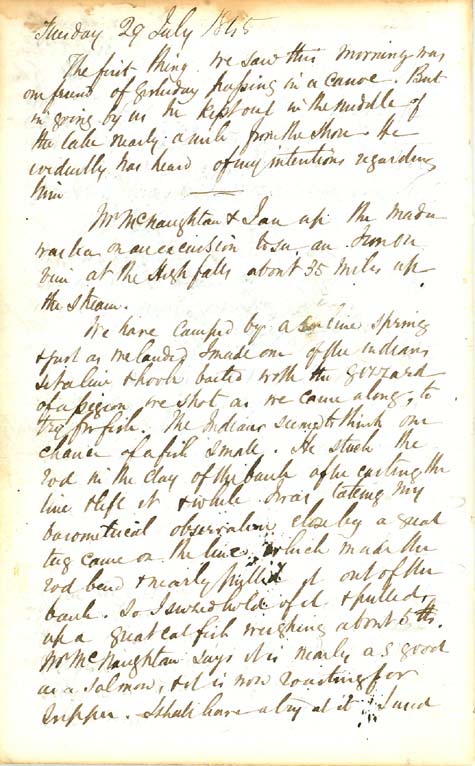 Tuesday 29 July 1845
The first thing we saw this morning was
our friend of yesterday passing in a canoe. But
in going by us he kept out in the middle of
the lake nearly a mile from the shore. He
evidently has heard of my intentions regarding
him
Mr McNaughton & I are up the Mada
waska on an excursion to see an Iron ore
vein at the High falls about 35 miles up
the stream.
We have camped by a fine spring
& just as we landed I made one of the Indians
set a line & hook baited with the gizzard
of a pigeon we shot as we came along, to
try for fish. The Indians seemed to think our
chance of a fish small. He stuck the
rod in the clay of the bank after casting the
line & left it & while I was taking my
barometrical observations close by a great
tug came on the line which made the
rod bend & nearly pulled it out of the
bank. So I seized hold of it & pulled
up a great cat fish weighing about 5 lbs.
Mr McNaughton says it is nearly as good
as a salmon, & it is now roasting for
supper. I shall have a try at it I used